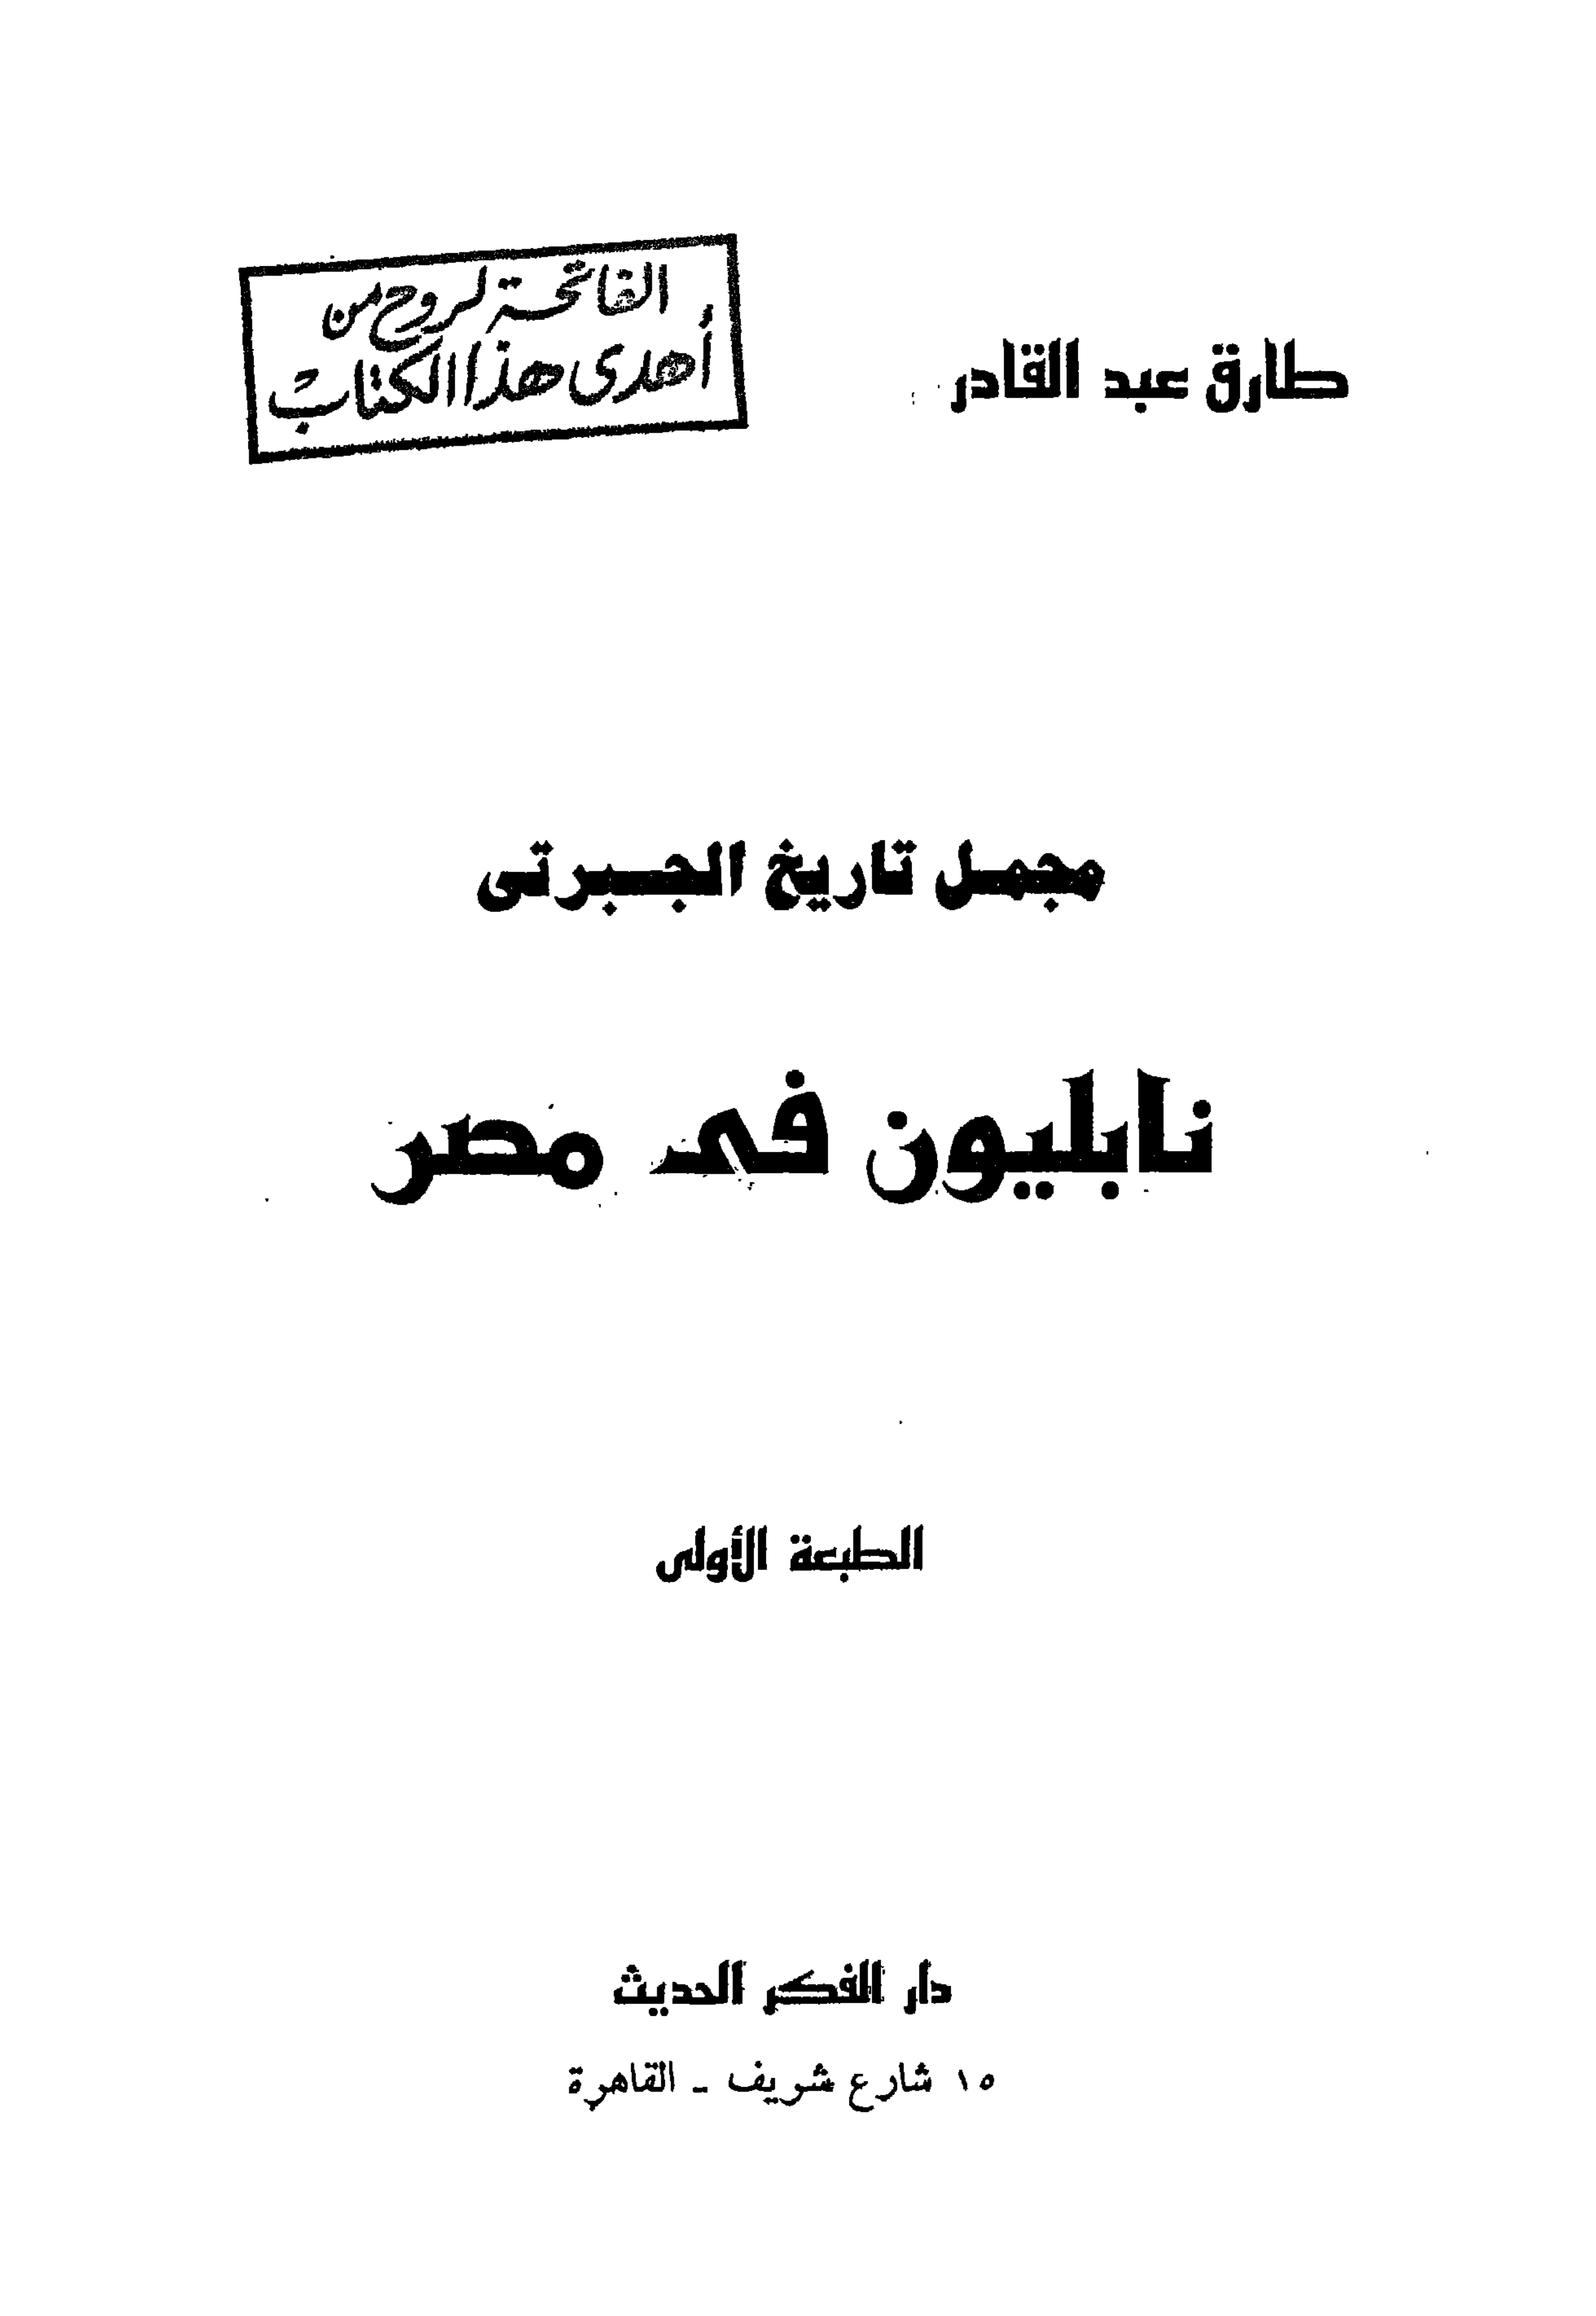 طارق عبد القادر
الفاتحة لروح من
أهدى هذا الكتاب
مجمل تاريخ الجبرتى
نابليون فى مصر
الطبعة الأولى
دار الفكر الحديث
١٥ شارع شريف - القاهرة